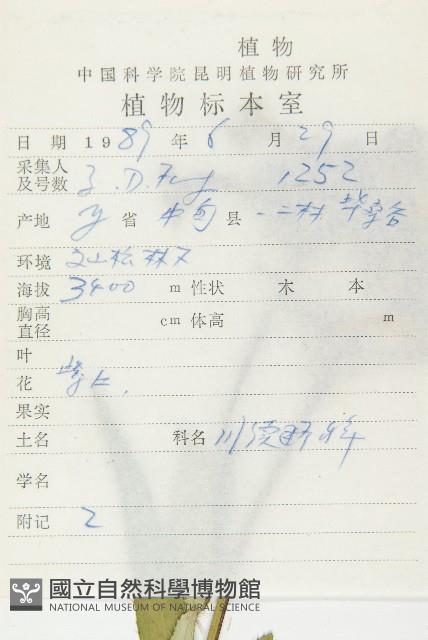 植物
中国科学院昆明植物研究所
植物标本室
日期 1989 年 6 月 29 日
采集人及号数 .D.Fang 1252
产地 省 中甸 县 二村
环境 松林下
海拔 3400 m 性状 木 本
胸高直径 cm 体高 m
叶
花 紫红.
果实
土名 科名 川滇野丹
学名
附记 2
國立自然科學博物館
NATIONAL MUSEUM OF NATURAL SCIENCE